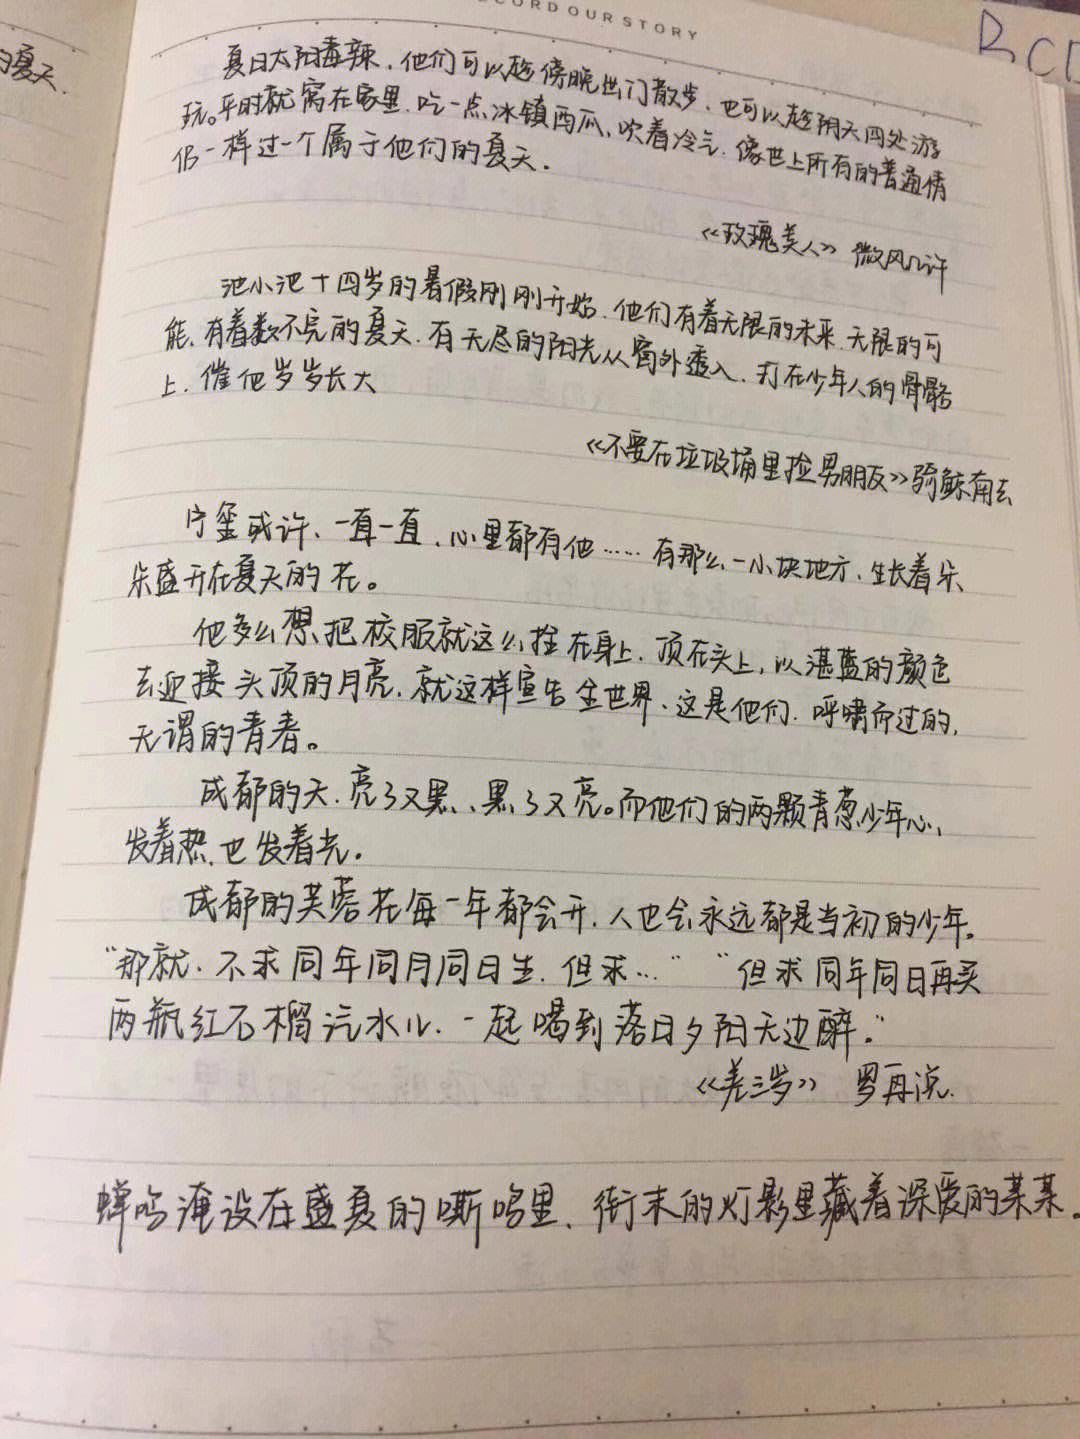 RECORD OUR STORY
BC
的夏天.
夏日太阳毒辣,他们可以趁傍晚出门散步,也可以趁阴天四处游
玩。平时就窝在家里,吃一点冰镇西瓜、吹着冷气,像世上所有的普通情
侣一样过一个属于他们的夏天.
《玫瑰美人》 微风几许
池小池十四岁的暑假刚刚开始,他们有着无限的未来,无限的可
能,有着数不完的夏天,有无尽的阳光从窗外透入,打在少年人的骨骼
上,催他岁岁长大
《不要在垃圾桶里捡男朋友》骑鲸南去
宁玺或许、一直一直,心里都有他……有那么一小块地方,生长着朵
朵盛开在夏天的花。
他多么想把校服就这么拴在身上,顶在头上,以湛蓝的颜色
去迎接头顶的月亮,就这样宣告全世界、这是他们,呼啸而过的,
无谓的青春。
成都的天,亮了又黑、黑了又亮。而他们的两颗青葱少年心,
发着热,也发着光.
成都的芙蓉花每一年都会开,人也会永远都是当初的少年。
"那就,不求同年同月同日生,但求…" "但求同年同日再买
两瓶红石榴汽水儿,一起喝到落日夕阳无边醉。"
《差三岁》 罗再说.
蝉鸣淹没在盛夏的嘶鸣里,街末的灯影里藏着深爱的某某.